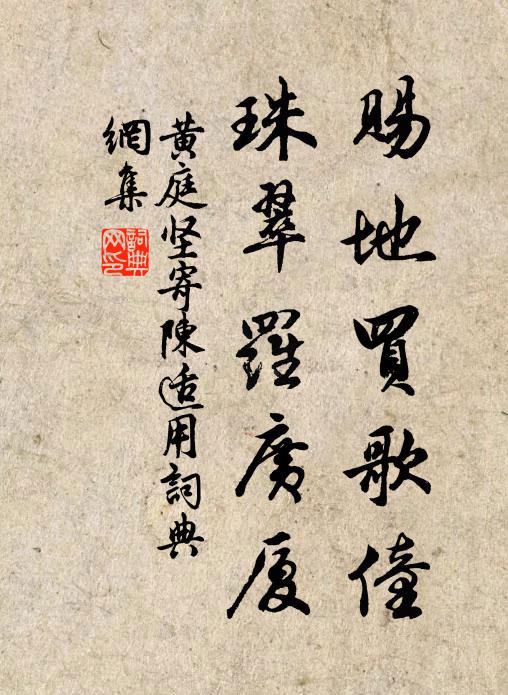 賜地買歌僮
珠翠羅廣厦
黄庭坚寄陳适用詞典
網集
詞典
网印